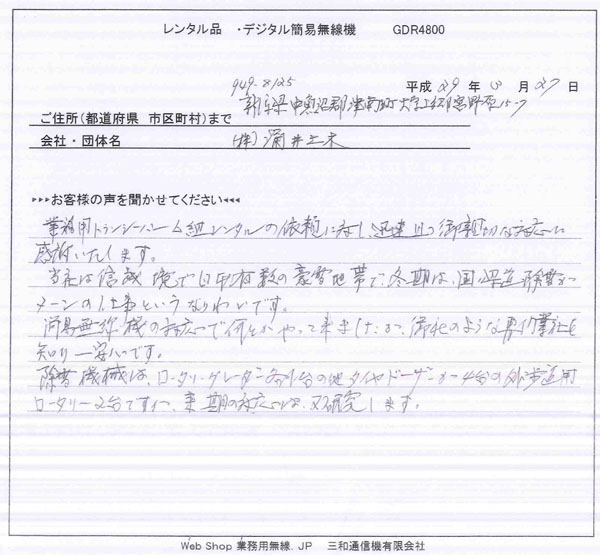 レンタル品 ・デジタル簡易無線機 GDR4800
949-8125
平成 29 年 3 月 27 日
新潟県中魚沼郡津南町大字上郷宮野原15-7
ご住所(都道府県 市区町村)まで
会社・団体名 (株)涌井土木
▸▸▸お客様の声を聞かせてください◂◂◂
業務用トランシーバー 組レンタルの依頼に対し、迅速且つ御親切な対応に
感謝いたします。
当社は信越境で日本有数の豪雪地帯で、冬期は、国 除雪
の仕事というなりわいです。
簡易無線機の対応で何とかやって来ましたが、御社のような専門業社を
知り一安心です。
除雪機械は、ロータリー、グレーダー各1台の他タイヤドーザー 4台の 運用
ロータリー2台ですが、来期の対応は、又研究します。
Web Shop 業務用無線.JP 三和通信機有限会社